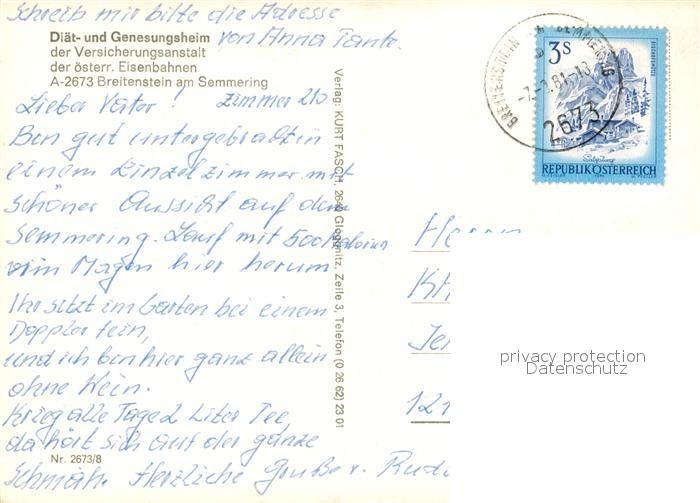 Schreib mir bitte die Adresse
von Anna Tante.
Diät- und Genesungsheim
der Versicherungsanstalt
der österr. Eisenbahnen
A-2673 Breitenstein am Semmering
Lieber Vater! Zimmer 210
Bin gut untergebracht in
einem Einzelzimmer mit
schöner Aussicht auf den
Semmering. Lauf mit 500 Kalorien
im Magen hier herum.
Ihr sitzt im Garten bei einem
Doppler fein,
und ich bin hier ganz allein
ohne Wein.
Krieg alle Tage 2 Liter Tee,
da hört sich auf der ganze
Schmäh. Herzliche Grüße v. Rudi
Nr. 2673/8
Verlag: KURT FASCH, 2640 Gloggnitz, Zeile 3, Telefon (0 26 62) 23 01
BREITENSTEIN AM SEMMERING
2673
3 S
REPUBLIK ÖSTERREICH
121
privacy protection
Datenschutz